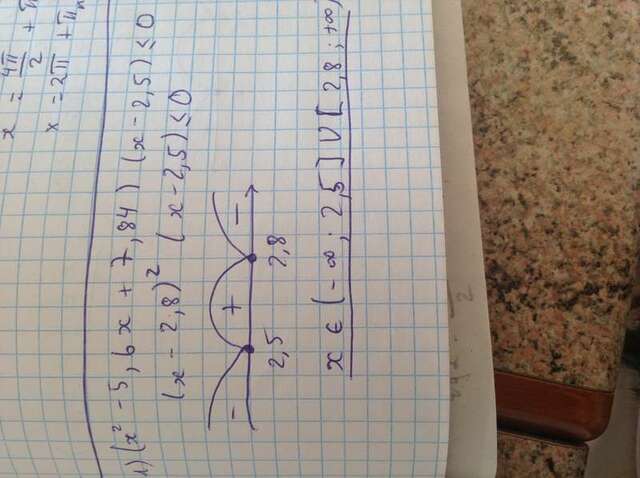 x = 4π/2 + π
x = 2π + πn
1) (x² - 5,6x + 7,84) (x - 2,5) ≤ 0
(x - 2,8)² (x - 2,5) ≤ 0
- + -
2,5 2,8
x ∈ (-∞; 2,5] ∪ [2,8; +∞)